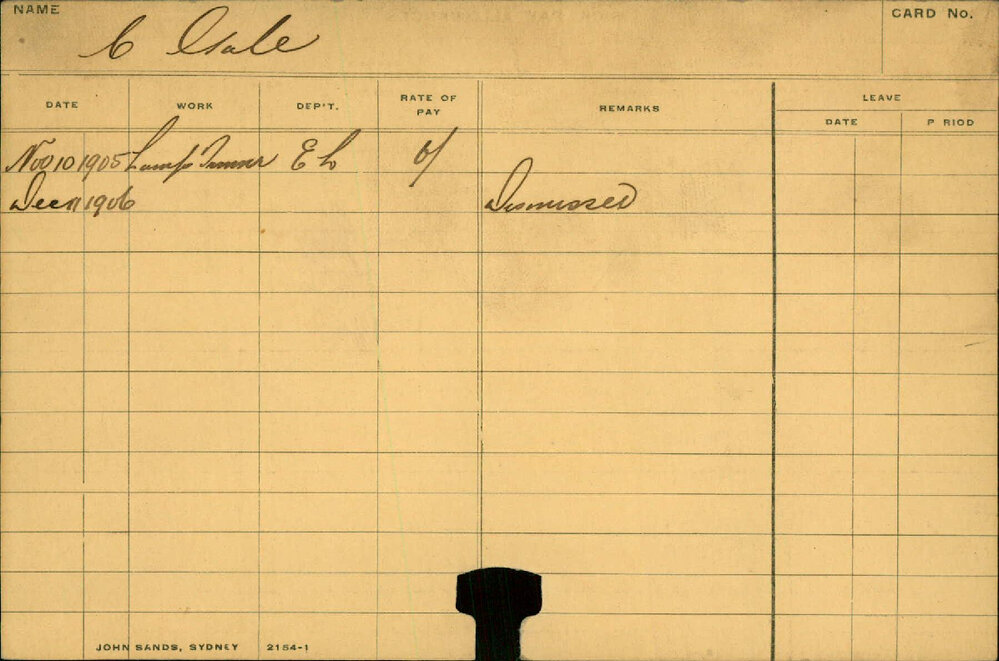 NAME
C Gale
CARD No.
DATE WORK DEP'T. RATE OF PAY REMARKS LEAVE
DATE P RIOD
Nov 10 1905 Lamp Trimmer E L 6/
Dec 11 1906 Dismissed
JOHN SANDS, SYDNEY 2154-1